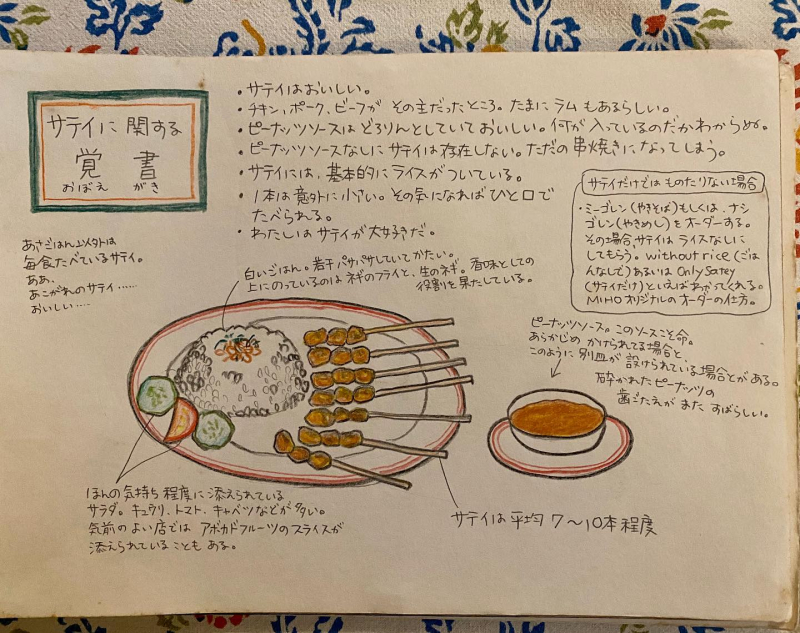 サテイに関する
覚書
おぼえがき
・サテイはおいしい。
・チキン、ポーク、ビーフが その主だったところ。たまに ラム もあるらしい。
・ピーナッツソースは どろりんとしていておいしい。何が入っているのだかわからぬ。
・ピーナッツソースなしに サテイは存在しない。ただの串焼きになってしまう。
・サテイには、基本的にライスがついている。
・1本は意外に小さい。その気になればひと口で
たべられる。
・わたしは サテイが大好きだ。
サテイだけでは ものたりない場合
・ミーゴレン(やきそば)もしくは、ナシ
ゴレン(やきめし)をオーダーする。
その場合、サテイは ライスなしに
してもらう。without rice(ごは
んなしで)あるいは Only Satey
(サテイだけ)といえばわかってくれる。
MIHOオリジナルのオーダーの仕方。
あさごはん以外は
毎食たべているサテイ。
ああ、
あこがれのサテイ……
おいしい……
白いごはん。若干 パサパサしていてかたい。
上にのっているのは ネギのフライと、生のネギ。香味としての
役割を果たしている。
ピーナッツソース。このソースこそ命。
あらかじめ かけられてる場合と、
このように 別皿が 設けられている場合とがある。
砕かれたピーナッツの
歯ごたえが また すばらしい。
ほんの気持ち 程度に添えられている
サラダ。キュウリ、トマト、キャベツなどが多い。
気前のよい店では アボカドフルーツのスライスが
添えられていることも ある。
サテイは 平均 7〜10本 程度